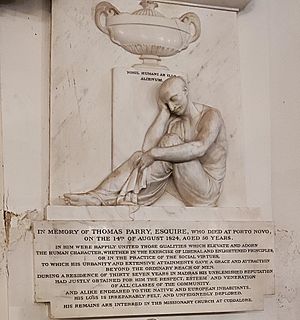 NIHIL HUMANI AB ILLO
ALIENUM.
IN MEMORY OF THOMAS PARRY, ESQUIRE, WHO DIED AT PORTO NOVO,
ON THE 14TH OF AUGUST 1824, AGED 56 YEARS.
IN HIM WERE HAPPILY UNITED THOSE QUALITIES WHICH ELEVATE AND ADORN
THE HUMAN CHARACTER, WHETHER IN THE EXERCISE OF LIBERAL AND ENLIGHTENED PRINCIPLES,
OR IN THE PRACTICE OF THE SOCIAL VIRTUES.
TO WHICH HIS URBANITY AND EXTENSIVE ATTAINMENTS GAVE A GRACE AND ATTRACTION
BEYOND THE ORDINARY REACH OF MEN.
DURING A RESIDENCE OF THIRTY SEVEN YEARS IN MADRAS HIS UNBLEMISHED REPUTATION
HAD JUSTLY OBTAINED FOR HIM THE RESPECT, ESTEEM AND VENERATION
OF ALL CLASSES OF THE COMMUNITY,
AND ALIKE ENDEARED TO THE NATIVE AND EUROPEAN INHABITANTS.
HIS LOSS IS IRREPARABLY FELT, AND UNFEIGNEDLY DEPLORED.
HIS REMAINS ARE INTERRED IN THE MISSIONARY CHURCH AT CUDDALORE.